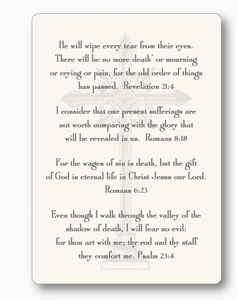 He will wipe every tear from their eyes.
There will be no more death' or mourning
or crying or pain, for the old order of things
has passed. Revelation 21:4
I consider that our present sufferings are
not worth comparing with the glory that
will be revealed in us. Romans 8:18
For the wages of sin is death, but the gift
of God is eternal life in Christ Jesus our Lord.
Romans 6:23
Even though I walk through the valley of the
shadow of death, I will fear no evil:
for thou art with me; thy rod and thy staff
they comfort me. Psalm 23:4